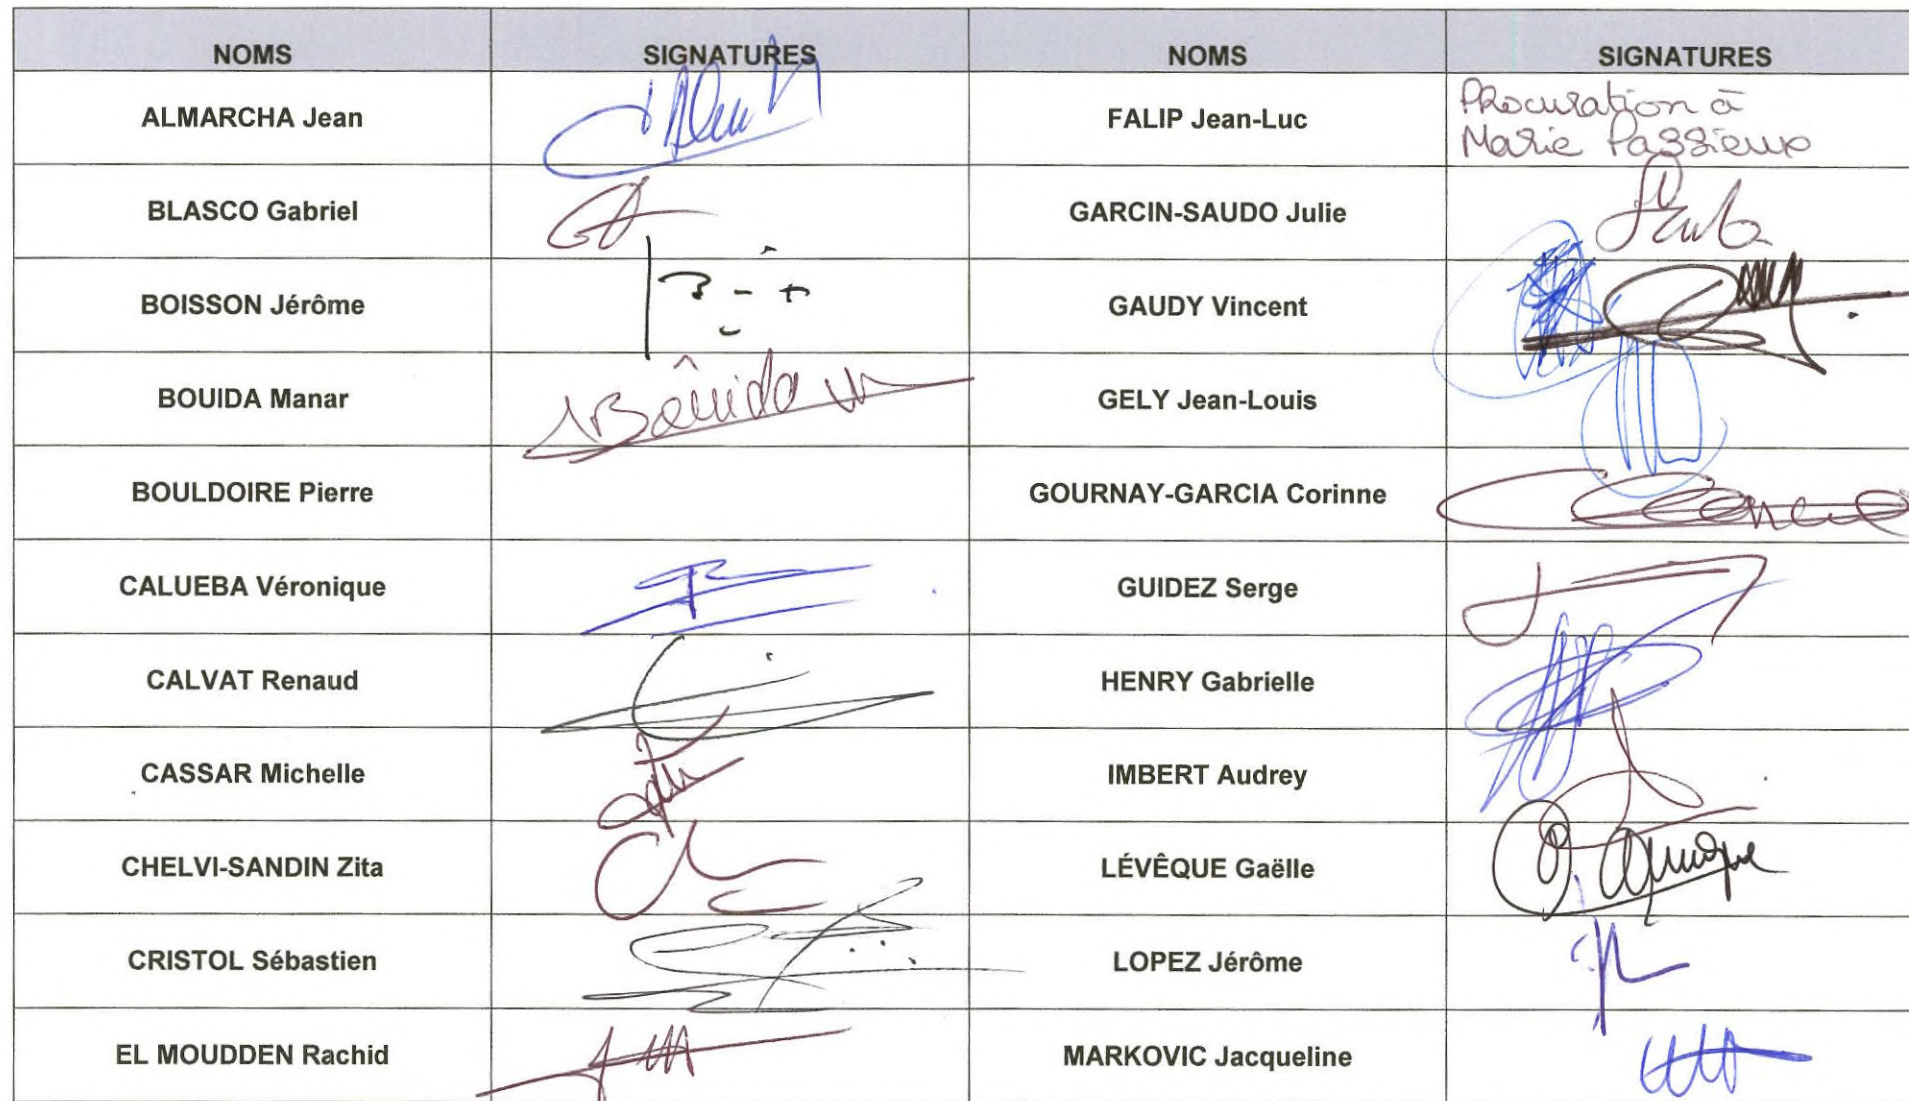 NOMS SIGNATURES NOMS SIGNATURES
ALMARCHA Jean FALIP Jean-Luc Procuration à
Marie Passieux
BLASCO Gabriel GARCIN-SAUDO Julie
BOISSON Jérôme GAUDY Vincent
BOUIDA Manar Bouida GELY Jean-Louis
BOULDOIRE Pierre GOURNAY-GARCIA Corinne
CALUEBA Véronique GUIDEZ Serge
CALVAT Renaud HENRY Gabrielle
CASSAR Michelle IMBERT Audrey
CHELVI-SANDIN Zita LÉVÊQUE Gaëlle
CRISTOL Sébastien LOPEZ Jérôme
EL MOUDDEN Rachid MARKOVIC Jacqueline